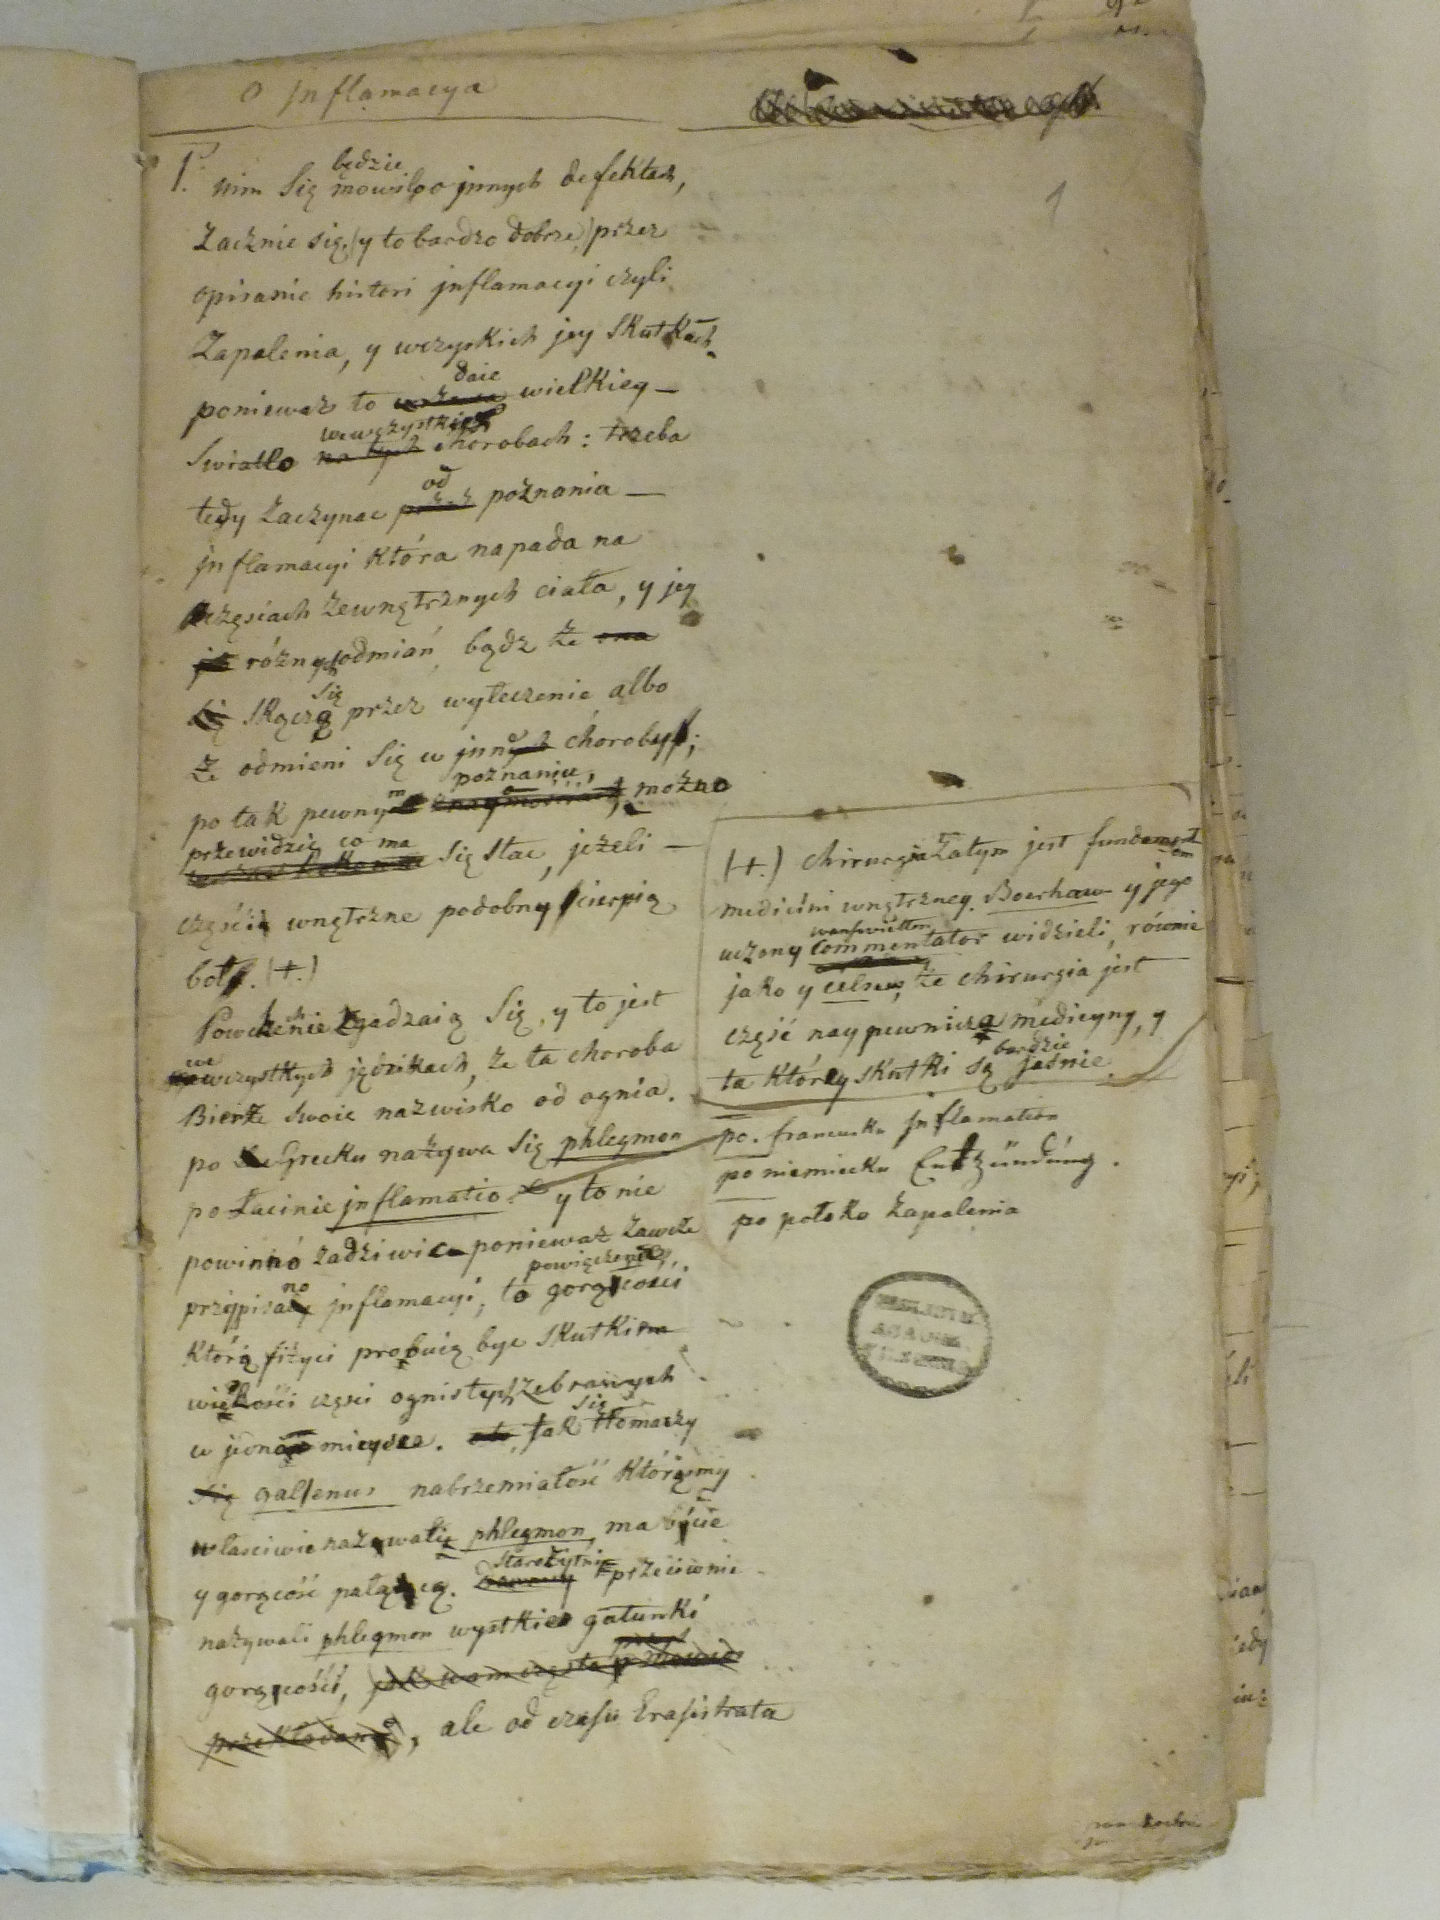 O Jnflamacya
1
1. nim Się będzie mowiło o jnnych defektach,
Zacznie się (y to bardzo dobrze) przez
opisanie histori jnflamacyi czyli
Zapalenia, y wszyskich jey Skutkach
ponieważ to daie wielkiey —
Swiatło we wszystkich chorobach: trzeba
tedy zaczynac od poznania —
jnflamacyi która napada na
częsciach zewnętrznych ciała, y jey
różnych odmiań, bądz że ona
się Skączą się przez wyleczenie albo
że odmieni Się w jnną choroby;
po tak pewnym poznaniu, możno
przewidzić co ma Się stac, jeżeli —
częścia wnętrzne podobny cierpią
boły. (+.)
Powszechnie zgadzaią Się, y to jest
we wszystkych języikach, że ta choroba
Bierże swoie nazwisko od ognia.
po Grecku nażywa Się phlegmon
po Łacinie jnflamatio. y to nie
powinno zadziwic ponieważ zawsze
przypisano jnflamacyi, to powięczenie gorącości
Którą fizyci probuią byc skutkiem
wielkości częsci ognistych zebranych
w jedno mieysce. Jak się tłomaszy
Się galenus nabrzemiałość którąsmy
własciwie nażywali phlegmon, ma bicie
y gorącość pałającą. Starożytni przeciwnie
nażywali phlegmon wystkie gatunki
gorącości,
, ale od czasu Erasistrata
(+.) chirurgia Zatym jest fundamentem
medicini wnętrzney. Boerhaw y jego
uczony Commentator wanswietten widzieli, równie
jako y celsus, że chirurgia jest
część naypewnieszą medicyny, y
ta którey skutki są bardzie jaśnie.
po francusku Jnflamation
po niemiecku Entzündung.
po polsko zapalenia